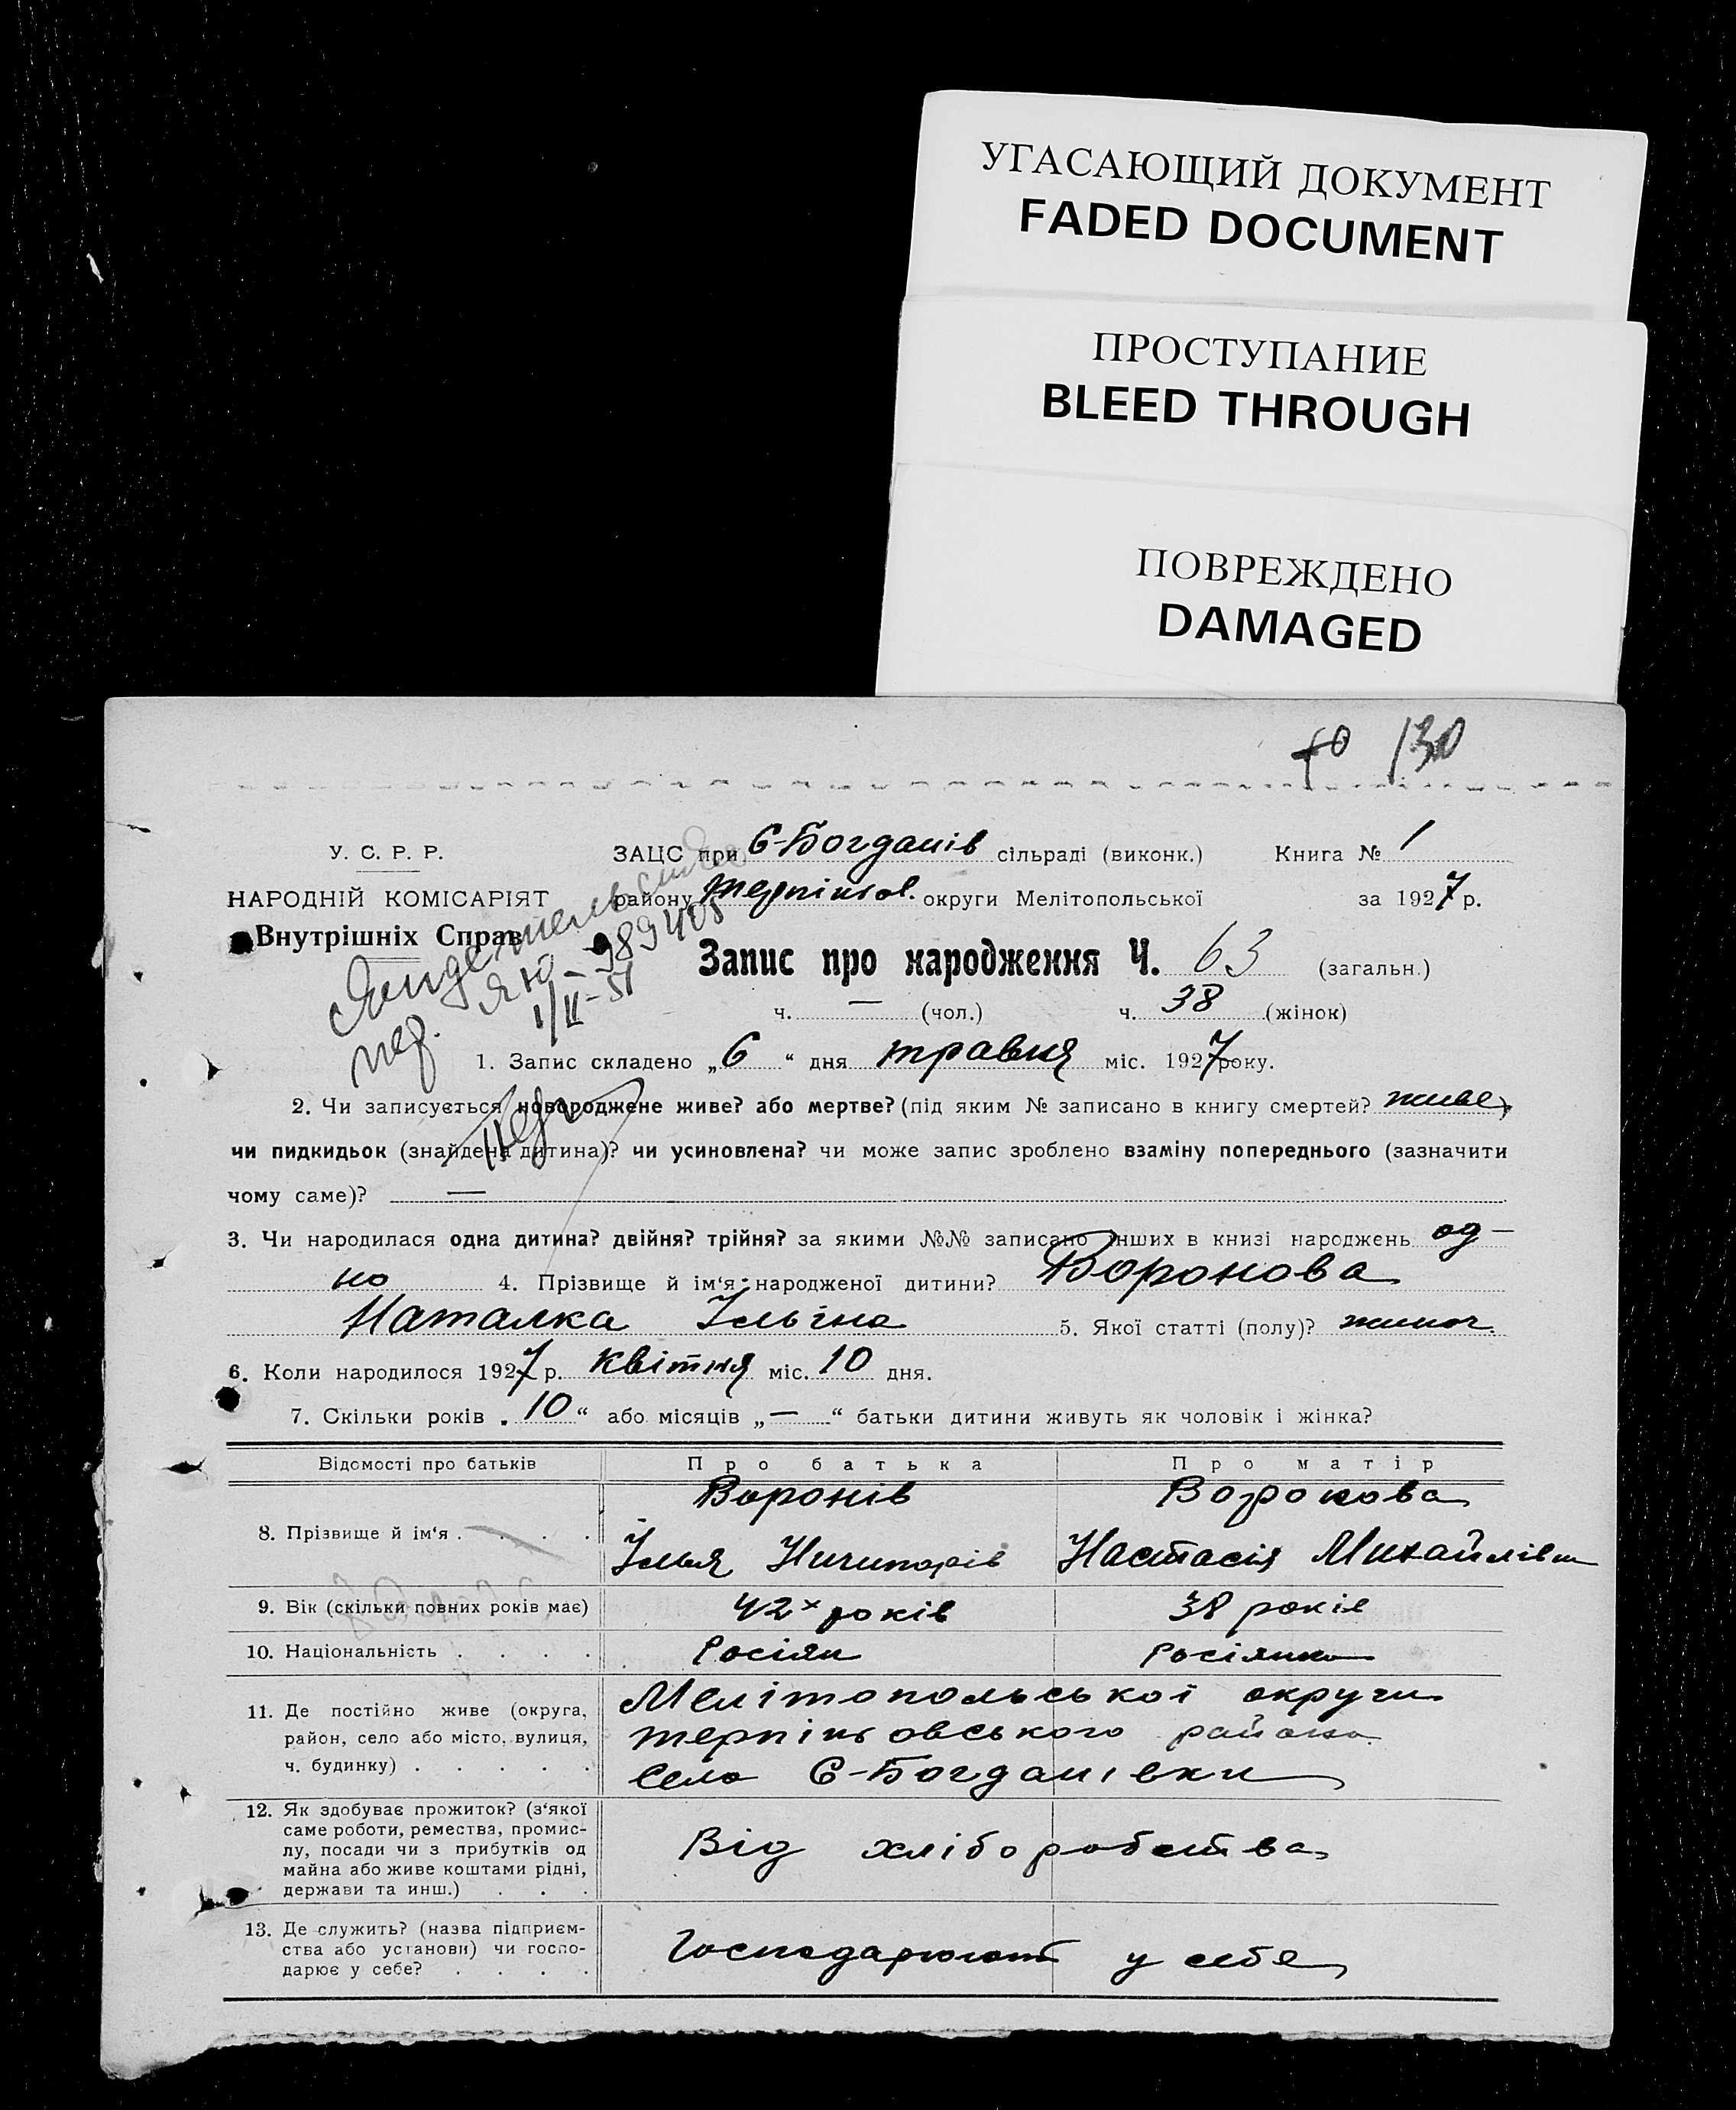 УГАСАЮЩИЙ ДОКУМЕНТ
FADED DOCUMENT
ПРОСТУПАНИЕ
BLEED THROUGH
ПОВРЕЖДЕНО
DAMAGED
130
У. С. Р. Р.
НАРОДНІЙ КОМІСАРІЯТ
Внутрішніх Справ
ЗАЦС при Є-Богданів сільраді (виконк.) Книга № 1
району терпіньов. округи Мелітопольської за 1927 р.
Запис про народження Ч. 63 (загальн.)
ч. — (чол.) ч. 38 (жінок)
ЯЮ - 989405
1/II-51
1. Запис складено „6“ дня травня міс. 1927 року.
2. Чи записується новороджене живе? або мертве? (під яким № записано в книгу смертей? живе)
чи пидкидьок (знайдена дитина)? чи усиновлена? чи може запис зроблено взаміну попереднього (зазначити
чому саме)? —
3. Чи народилася одна дитина? двійня? трійня? за якими №№ записано інших в книзі народжень од-
но 4. Прізвище й ім‘я народженої дитини? Воронова
Наталка Ільїна 5. Якої статті (полу)? жиноч.
6. Коли народилося 1927 р. квітня міс. 10 дня.
7. Скільки років „10“ або місяців „—“ батьки дитини живуть як чоловік і жінка?
Відомості про батьків Про батька Про матір
8. Прізвище й ім‘я . . . . Воронів Воронова
Ілья Ничипорів Настасія Михайлівна
9. Вік (скільки повних років має) 42х років 38 років
10. Національність . . . . Росіян Росіянка
11. Де постійно живе (округа,
район, село або місто, вулиця,
ч. будинку) . . . . .
Мелітопольської округи
терпіньовського района
село Є-Богданівки
12. Як здобуває прожиток? (з‘якої
саме роботи, ремества, промис-
лу, посади чи з прибутків од
майна або живе коштами рідні,
держави та инш.) . . .
Від хліборобства
13. Де служить? (назва підприєм-
ства або установи) чи госпо-
дарює у себе? . . . .
Господарюють у себе